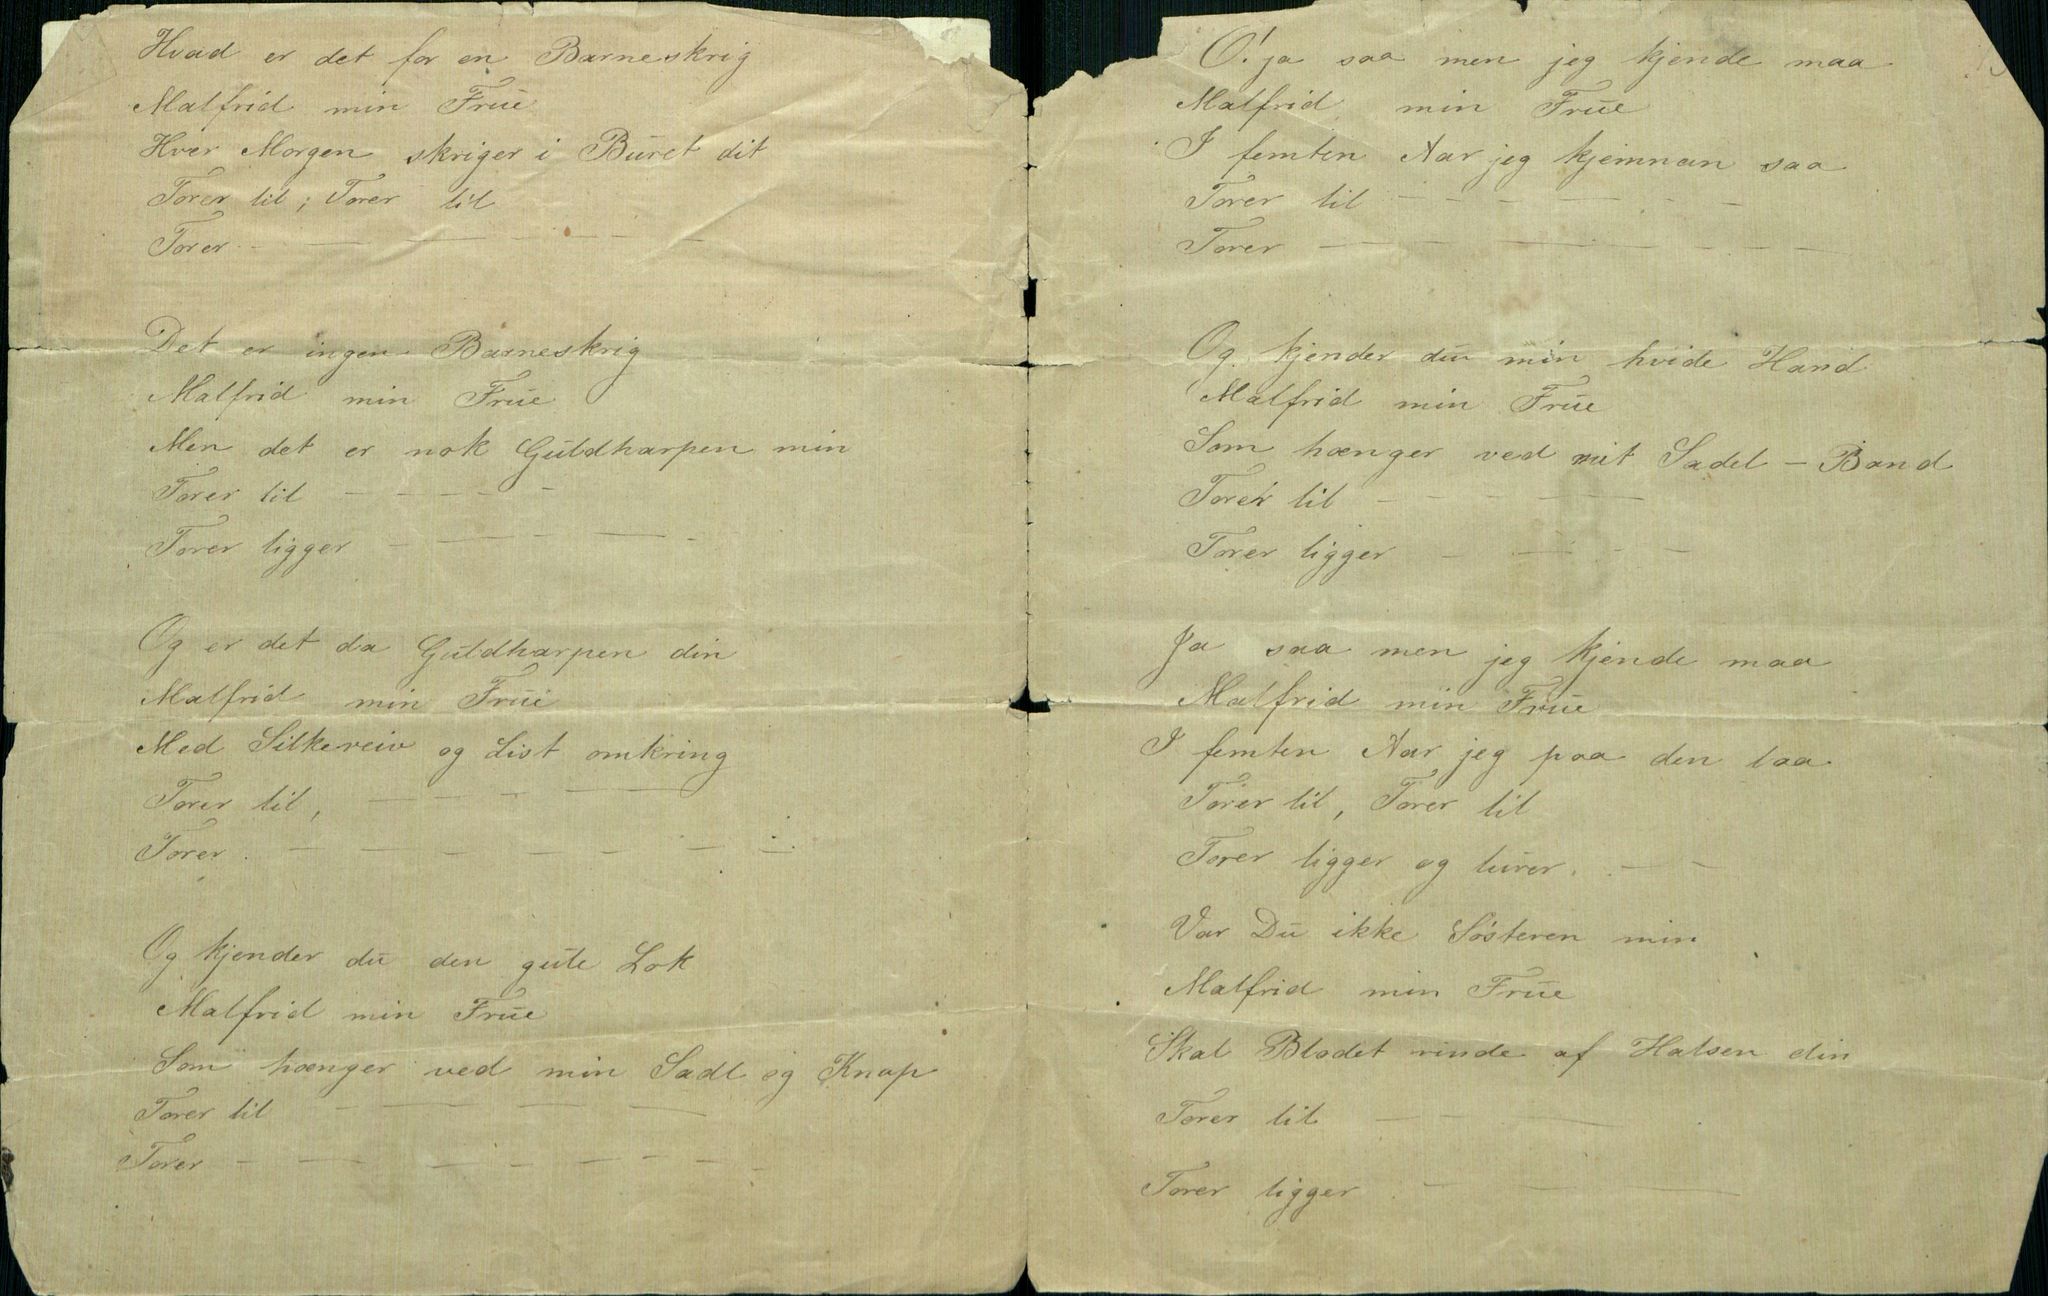 Hvad er det for en Barneskrig
Malfrid min Frue
Hver Morgen skriger i Buret dit
Torer til; Torer til
Torer - — — — - -
Det er ingen Barneskrig
Malfrid min Frue
Men det er nok Guldharpen min
Torer til - - - - -
Torer ligger - — - — -
Og er det da Guldharpen din
Malfrid min Frue
Med Silkereiv og List omkring
Torer til, — - - — —
Torer. - — — - - - ÷
Og kjender du den gule Lok
Malfrid min Frue
Som hænger ved min Sadl og Knap
Torer til - — — —
Torer - — — - - - - -
O! ja saa men jeg kjende maa
Malfrid min Frue
I femten Aar jeg kjemnan saa
Torer til - - - - — - -
Torer — - - — — - - - —
Og kjender du min hvide Hand
Malfrid min Frue
Som hænger ved mit Sadel - Band
Torer til - - - - — —
Torer ligger - — - -
Ja saa men jeg kjende maa
Malfrid min Frue
I femten Aar jeg paa den laa
Torer til, Torer til
Torer ligger og lurer. - —
Var Du ikke Søsteren min
Malfrid min Frue
Skal Blodet rinde af Halsen din
Torer til - - - —
Torer ligger - — —